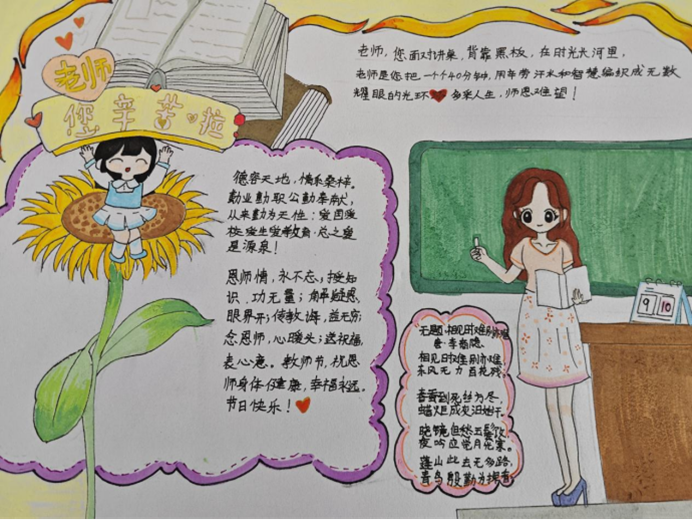 老师
您辛苦啦
老师,您面对讲桌,背靠黑板,在时光长河里,
老师是您把一个个40分钟,用年劳汗水和智慧编织成无数
耀眼的光环❤多彩人生,师恩难望!
德容天地,情系桑梓。
勤业勤职公勤奉献,
从来勤为天性:爱国爱
校爱生爱教育.总之爱
是源泉!
恩师情,永不忘;授知
识、功无量;解疑惑,
眼界开;传教诲,益无穷
念恩师,心暖头;送祝福,
表心意。教师节,祝恩
师身体健康,幸福永远。
节日快乐!
无题·相见时难别亦难
唐·李商隐
相见时难别亦难,
东风无力百花残
春蚕到死丝方尽,
蜡炬成灰泪始干。
晓镜但愁云鬓改,
夜吟应觉月光寒。
蓬山此去无多路,
青鸟殷勤为探看
9 10